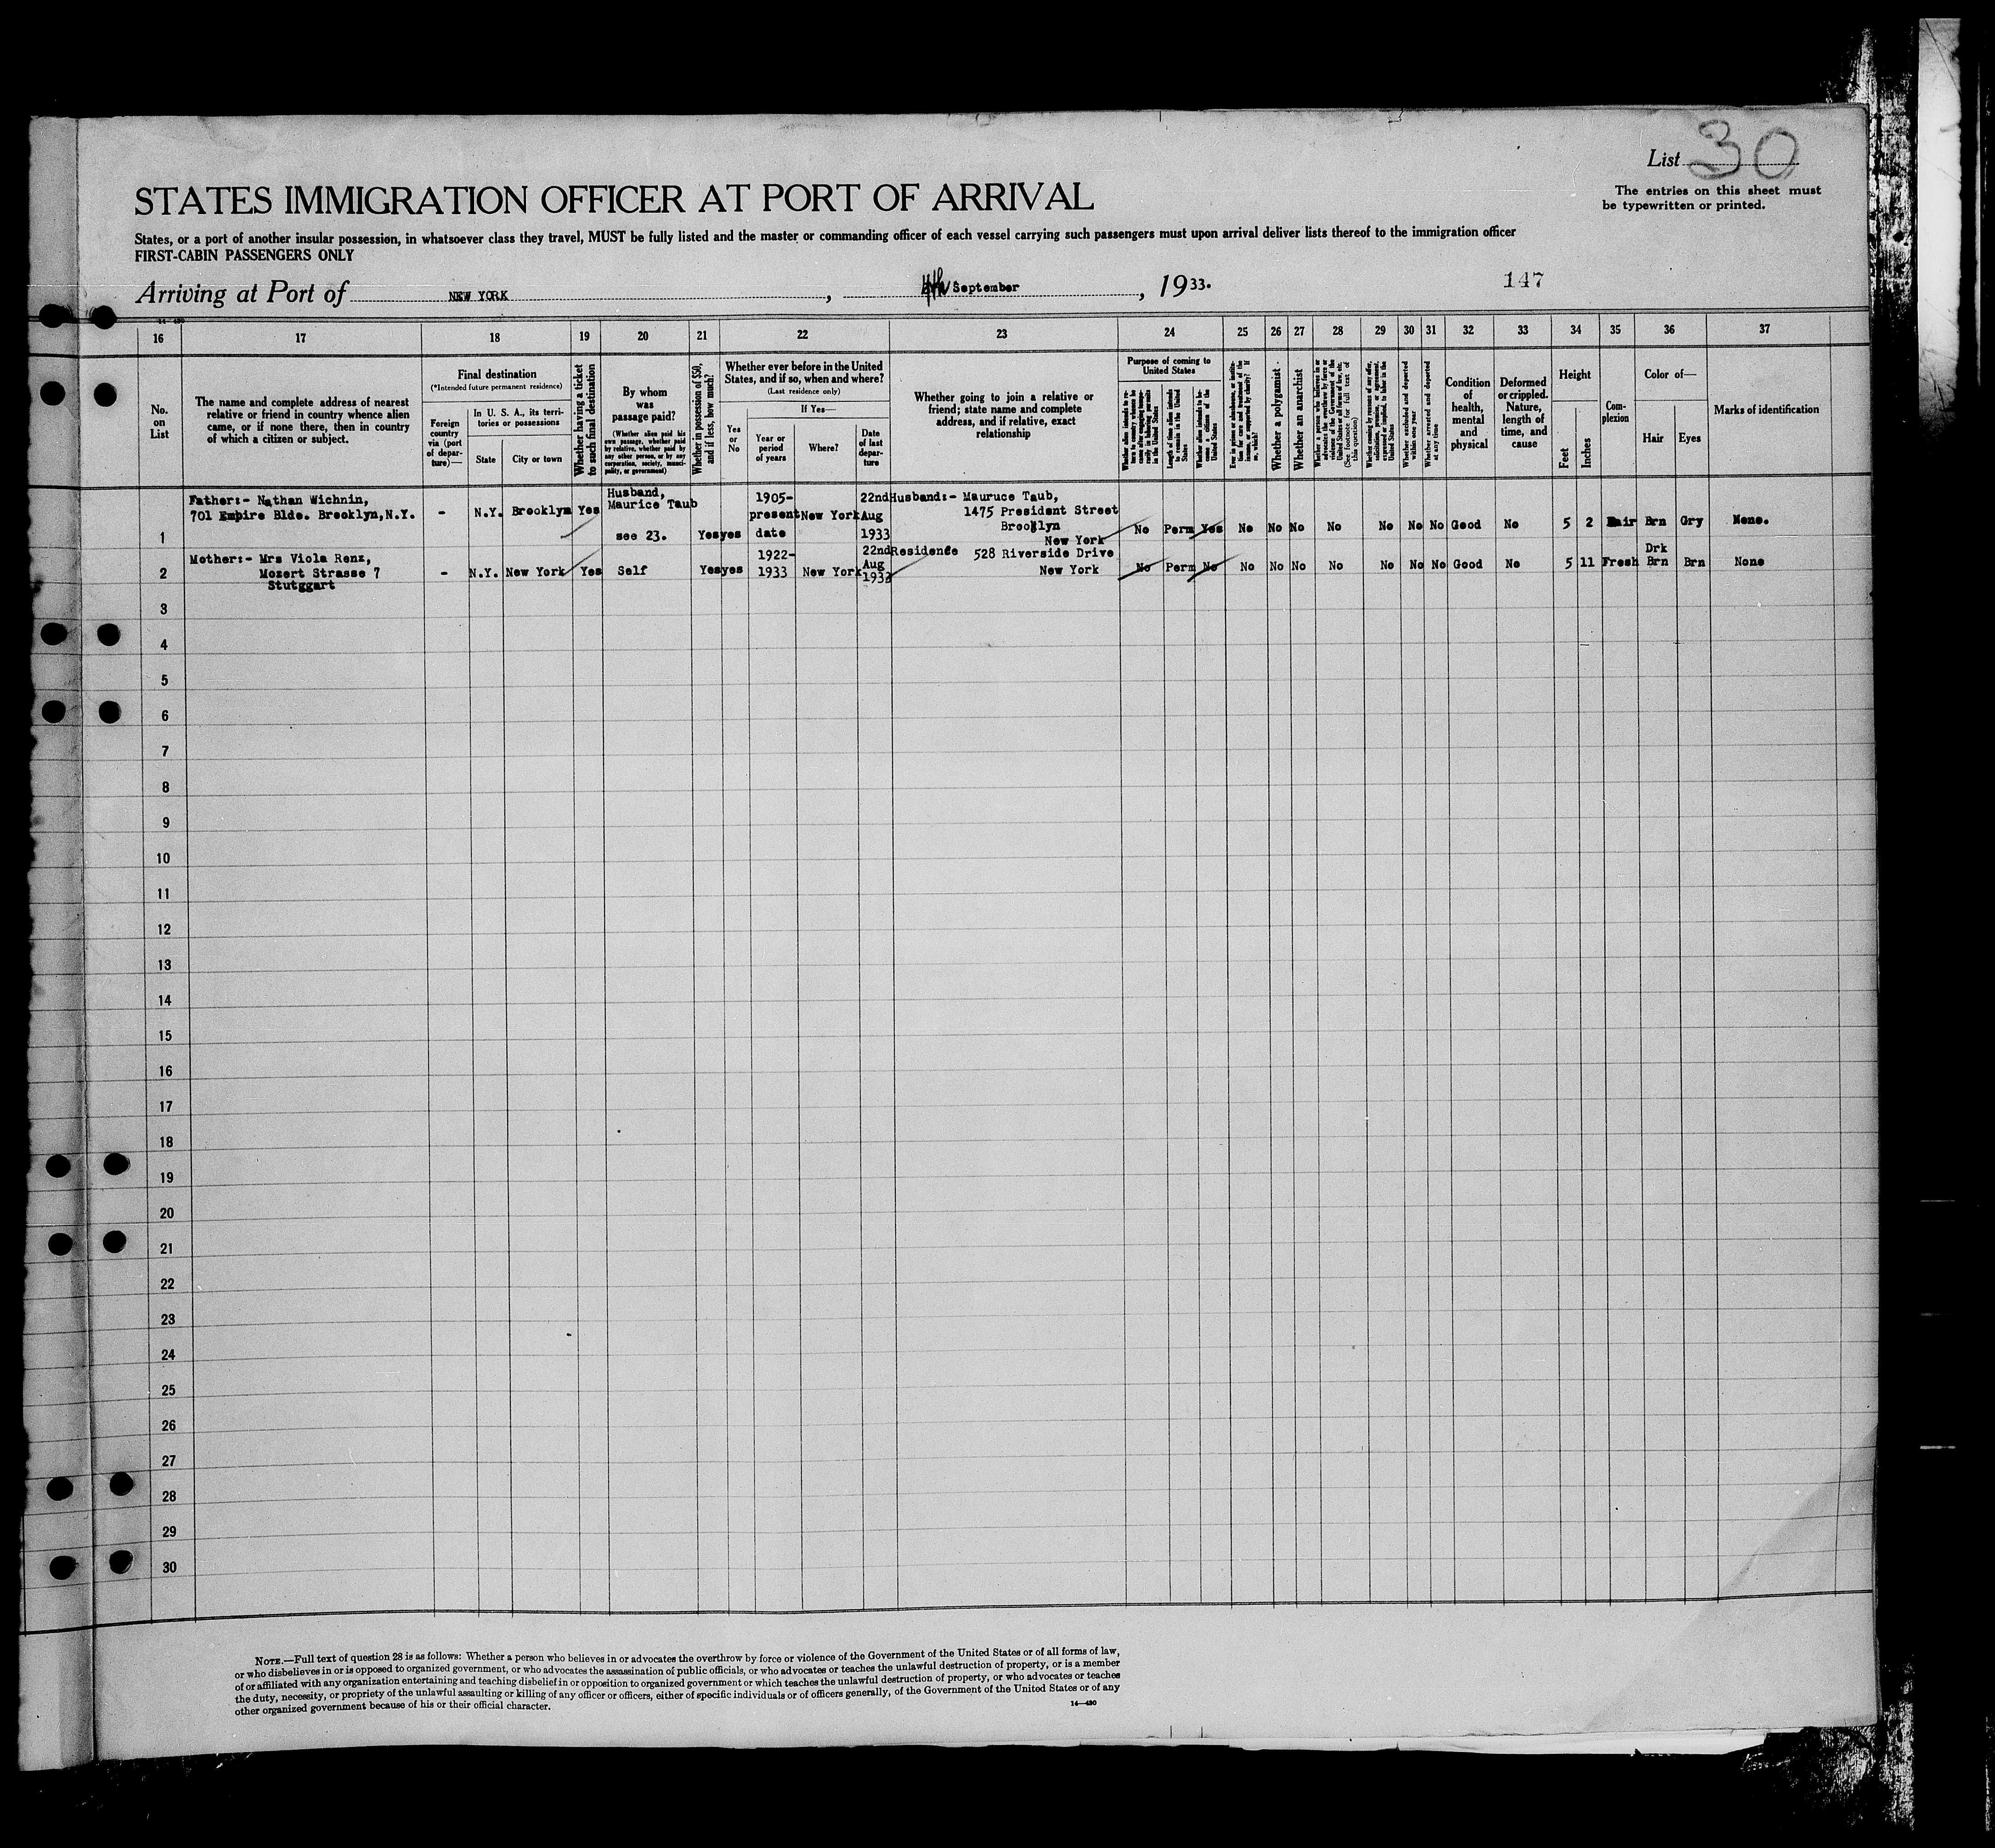 List 30
The entries on this sheet must
be typewritten or printed.
STATES IMMIGRATION OFFICER AT PORT OF ARRIVAL
States, or a port of another insular possession, in whatsoever class they travel, MUST be fully listed and the master or commanding officer of each vessel carrying such passengers must upon arrival deliver lists thereof to the immigration officer
FIRST-CABIN PASSENGERS ONLY
Arriving at Port of NEW YORK, 4th September, 1933.
147
16 17 18 19 20 21 22 23 24 25 26 27 28 29 30 31 32 33 34 35 36 37
No.
on
List
The name and complete address of nearest
relative or friend in country whence alien
came, or if none there, then in country
of which a citizen or subject.
Final destination
(*Intended future permanent residence)
Foreign
country
via (port
of depar-
ture)—
In U. S. A., its terri-
tories or possessions
State
City or town
Whether having a ticket
to such final destination
By whom
was
passage paid?
(Whether alien paid his
own passage, whether paid
by relative, whether paid by
any other person, or by any
corporation, society, munici-
pality, or government)
Whether in possession of $50,
and if less, how much?
Whether ever before in the United
States, and if so, when and where?
(Last residence only)
Yes
or
No
If Yes—
Year or
period
of years
Where?
Date
of last
depar-
ture
Whether going to join a relative or
friend; state name and complete
address, and if relative, exact
relationship
Purpose of coming to
United States
Length of time alien intends
to remain in the United
States
Whether alien intends to be-
come a citizen of the
United States
Whether a polygamist
Whether an anarchist
(See footnote for full text of
this question)
Whether arrested and deported
at any time
Condition
of
health,
mental
and
physical
Deformed
or crippled.
Nature,
length of
time, and
cause
Height
Feet
Inches
Com-
plexion
Color of—
Hair
Eyes
Marks of identification
1
Father:- Nathan Wichnin,
701 Empire Blde. Brooklyn,N.Y.
-
N.Y.
Brooklyn
Yes
Husband,
Maurice Taub
see 23.
Yes
yes
1905-
present
date
New York
22nd
Aug
1933
Husband:- Mauruce Taub,
1475 President Street
Brooklyn
New York
No Perm Yes No No No No No No No Good No 5 2 Fair Brn Gry None.
2
Mother:- Mrs Viola Renz,
Mozert Strasse 7
Stutggart
-
N.Y.
New York
Yes
Self
Yes
yes
1922-
1933
New York
22nd
Aug
1933
Residence 528 Riverside Drive
New York
No Perm No No No No No No No No Good No 5 11 Fresh
Drk
Brn
Brn
None
3
4
5
6
7
8
9
10
11
12
13
14
15
16
17
18
19
20
21
22
23
24
25
26
27
28
29
30
NOTE.—Full text of question 28 is as follows: Whether a person who believes in or advocates the overthrow by force or violence of the Government of the United States or of all forms of law,
or who disbelieves in or is opposed to organized government, or who advocates the assassination of public officials, or who advocates or teaches the unlawful destruction of property, or is a member
of or affiliated with any organization entertaining and teaching disbelief in or opposition to organized government or which teaches the unlawful destruction of property, or who advocates or teaches
the duty, necessity, or propriety of the unlawful assaulting or killing of any officer or officers, either of specific individuals or of officers generally, of the Government of the United States or of any
other organized government because of his or their official character.
14—430